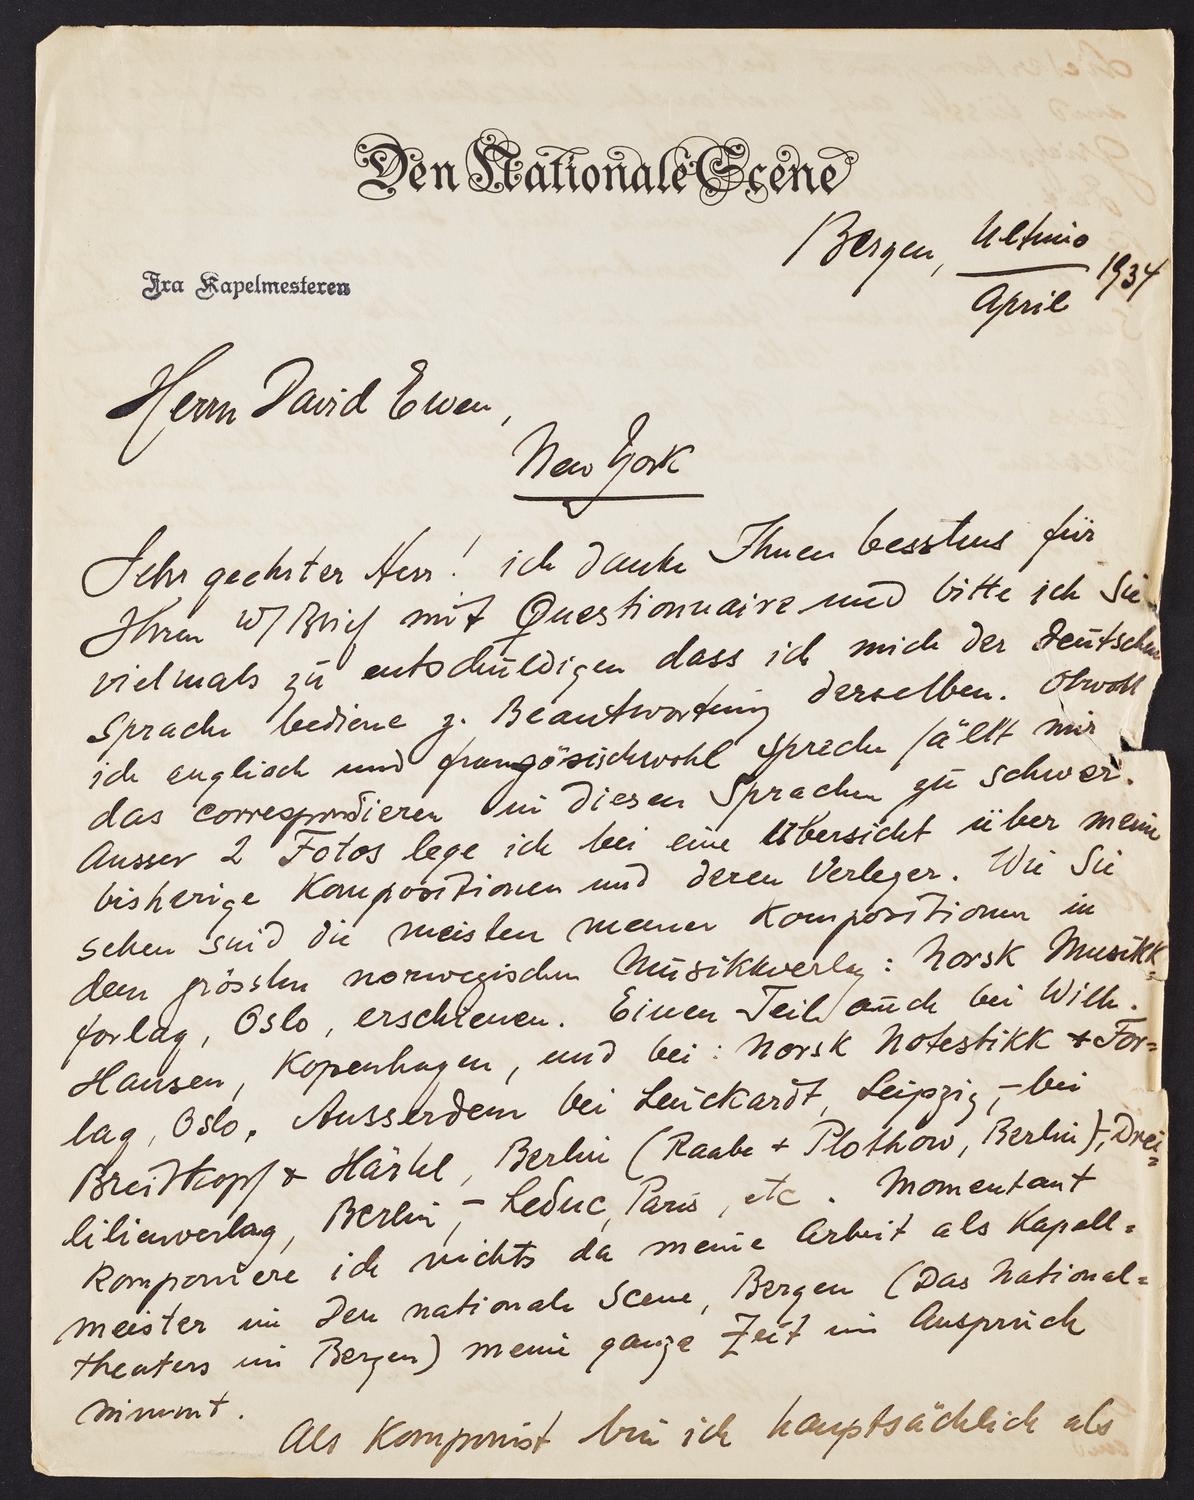 Den Nationale Scene
Bergen, Ultimo
April 1934
Fra Kapelmesteren
Herrn David Ewen,
New York
Sehr geehrter Herr! ich danke Ihnen besstens für
Ihren W/Brief mit Questionnaire und bitte ich Sie
vielmals zu entschuldigen dass ich mich der deutschen
Sprache bediene z. Beantwortung derselben. Obwohl
ich englisch und französisch wohl spreche fällt mir
das correspondieren in diesen Sprachen zu schwer.
Ausser 2 Fotos lege ich bei eine Übersicht über meine
bisherige Kompositionen und deren Verleger. Wie Sie
sehen sind die meisten meiner Kompositionen in
dem grössten norwegischen Musikkverlag: Norsk Musikk=
forlag, Oslo, erschienen. Einen Teil auch bei Wilh.
Hansen, Kopenhagen, und bei: Norsk Notestikk & For=
lag, Oslo. Ausserdem bei Leuckardt, Leipzig, – bei
Breitkopf & Härtel, Berlin (Raabe + Plothow, Berlin), Drei=
lilienverlag, Berlin, – Leduc, Paris, etc. Momentant
komponiere ich nichts da meine Arbeit als Kapell=
meister im Den nationale Scene, Bergen (Das National=
theaters in Bergen) meine ganze Zeit in Anspruch
nimmt.
Als Komponist bin ich hauptsächlich als